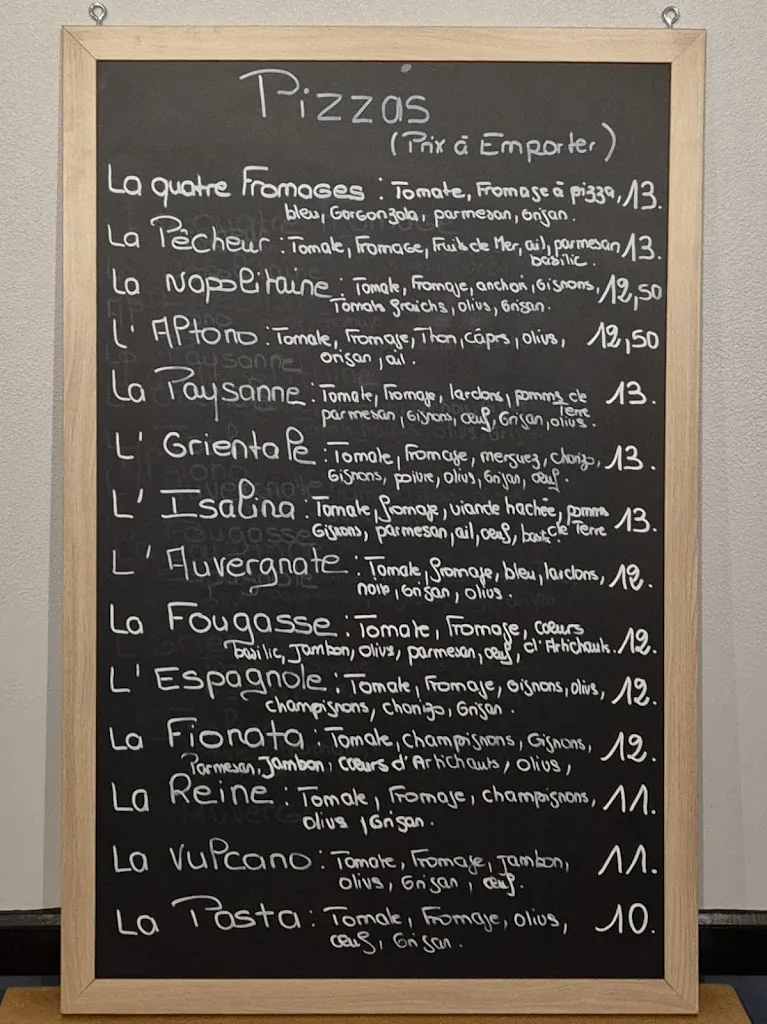 Pizzas
(Prix à Emporter)
La quatre Fromages : Tomate, Fromage à pizza, 13.
bleu, Gorgonzola, parmesan, Origan.
La Pêcheur : Tomate, Fromage, Fruits de Mer, ail, parmesan 13.
basilic.
La Napolitaine : Tomate, Fromaje, anchoi, Oignons, 12,50
Tomats fraichs, olivs, Origan.
L' APtono : Tomate, Fromaje, Thon, câprs, olivs, 12,50
origan, ail.
La Paysanne : Tomate, Fromaje, lardons, pomms de 13.
Terre
parmesan, Oignons, œuf, Origan, olivs.
L' Orientale : Tomate, Fromaje, merguez, chorizo, 13.
Oignons, poivre, olivs, Origan, œuf.
L' Isalina : Tomate, fromaje, viande hachée, pomms 13.
de Terre
Oignons, parmesan, ail, œuf,
L' Auvergnate : Tomate, fromaje, bleu, lardons, 12.
noix, Origan, olivs.
La Fougasse : Tomate, Fromaje, cœurs 12.
d'Artichauts.
basilic, Jambon, olivs, parmesan, œuf,
L' Espagnole : Tomate, Fromaje, oignons, olivs, 12.
champignons, chorizo, Origan.
La Fionata : Tomate, champignons, Oignons, 12.
Parmesan, Jambon, cœurs d'Artichauts, olivs,
La Reine : Tomate, Fromaje, champignons, 11.
olivs, Origan.
La Vulcano : Tomate, Fromaje, Jambon, 11.
olivs, Origan, œuf.
La Pasta : Tomate, Fromaje, olivs, 10.
œuf, Origan.